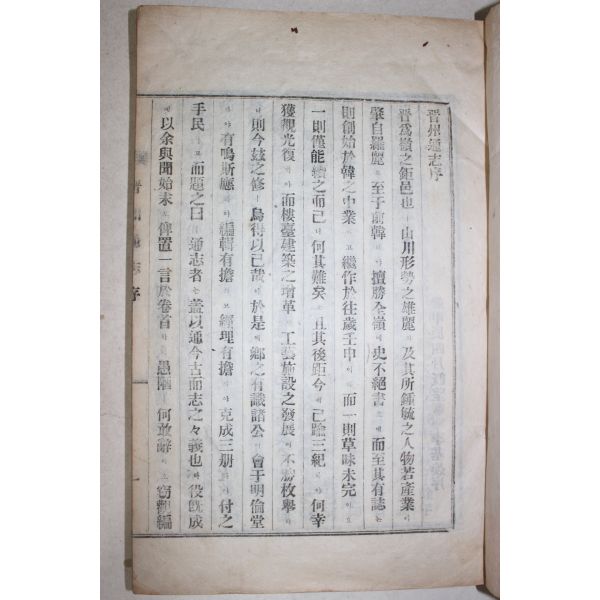 晋州通志序
晋爲嶺之鉅邑也 山川形勢之雄麗 及其所鍾毓之人物若產業
肇自羅麗 至于前韓 擅勝全嶺 史不絕書 而至其有誌
則創始於韓之中業 고 繼作於往歲壬申 而一則草昧未完
一則僅能續之而已 何其難矣 且其後距今 已踰三紀 何幸
獲觀光復 而樓臺建築之增革 工藝施設之發展 不勝枚擧
則今玆之修 烏得以已哉 於是 鄕之有識諸公 會于明倫堂
有鳴斯應 編輯有擔 고 經理有擔 克成三册 付之
手民 而題之曰 通志者 盖以通今古而志之々義也 役旣成
以余與聞始末 俾置一言於卷首 愚陋 何敢辭 竊觀編
序